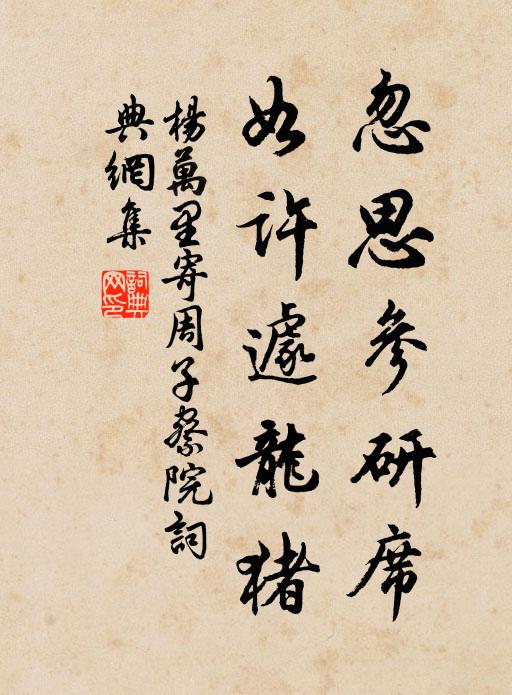 忽思参研席
如许遽龙猪
杨万里寄周子察院词
典网集
词典网印